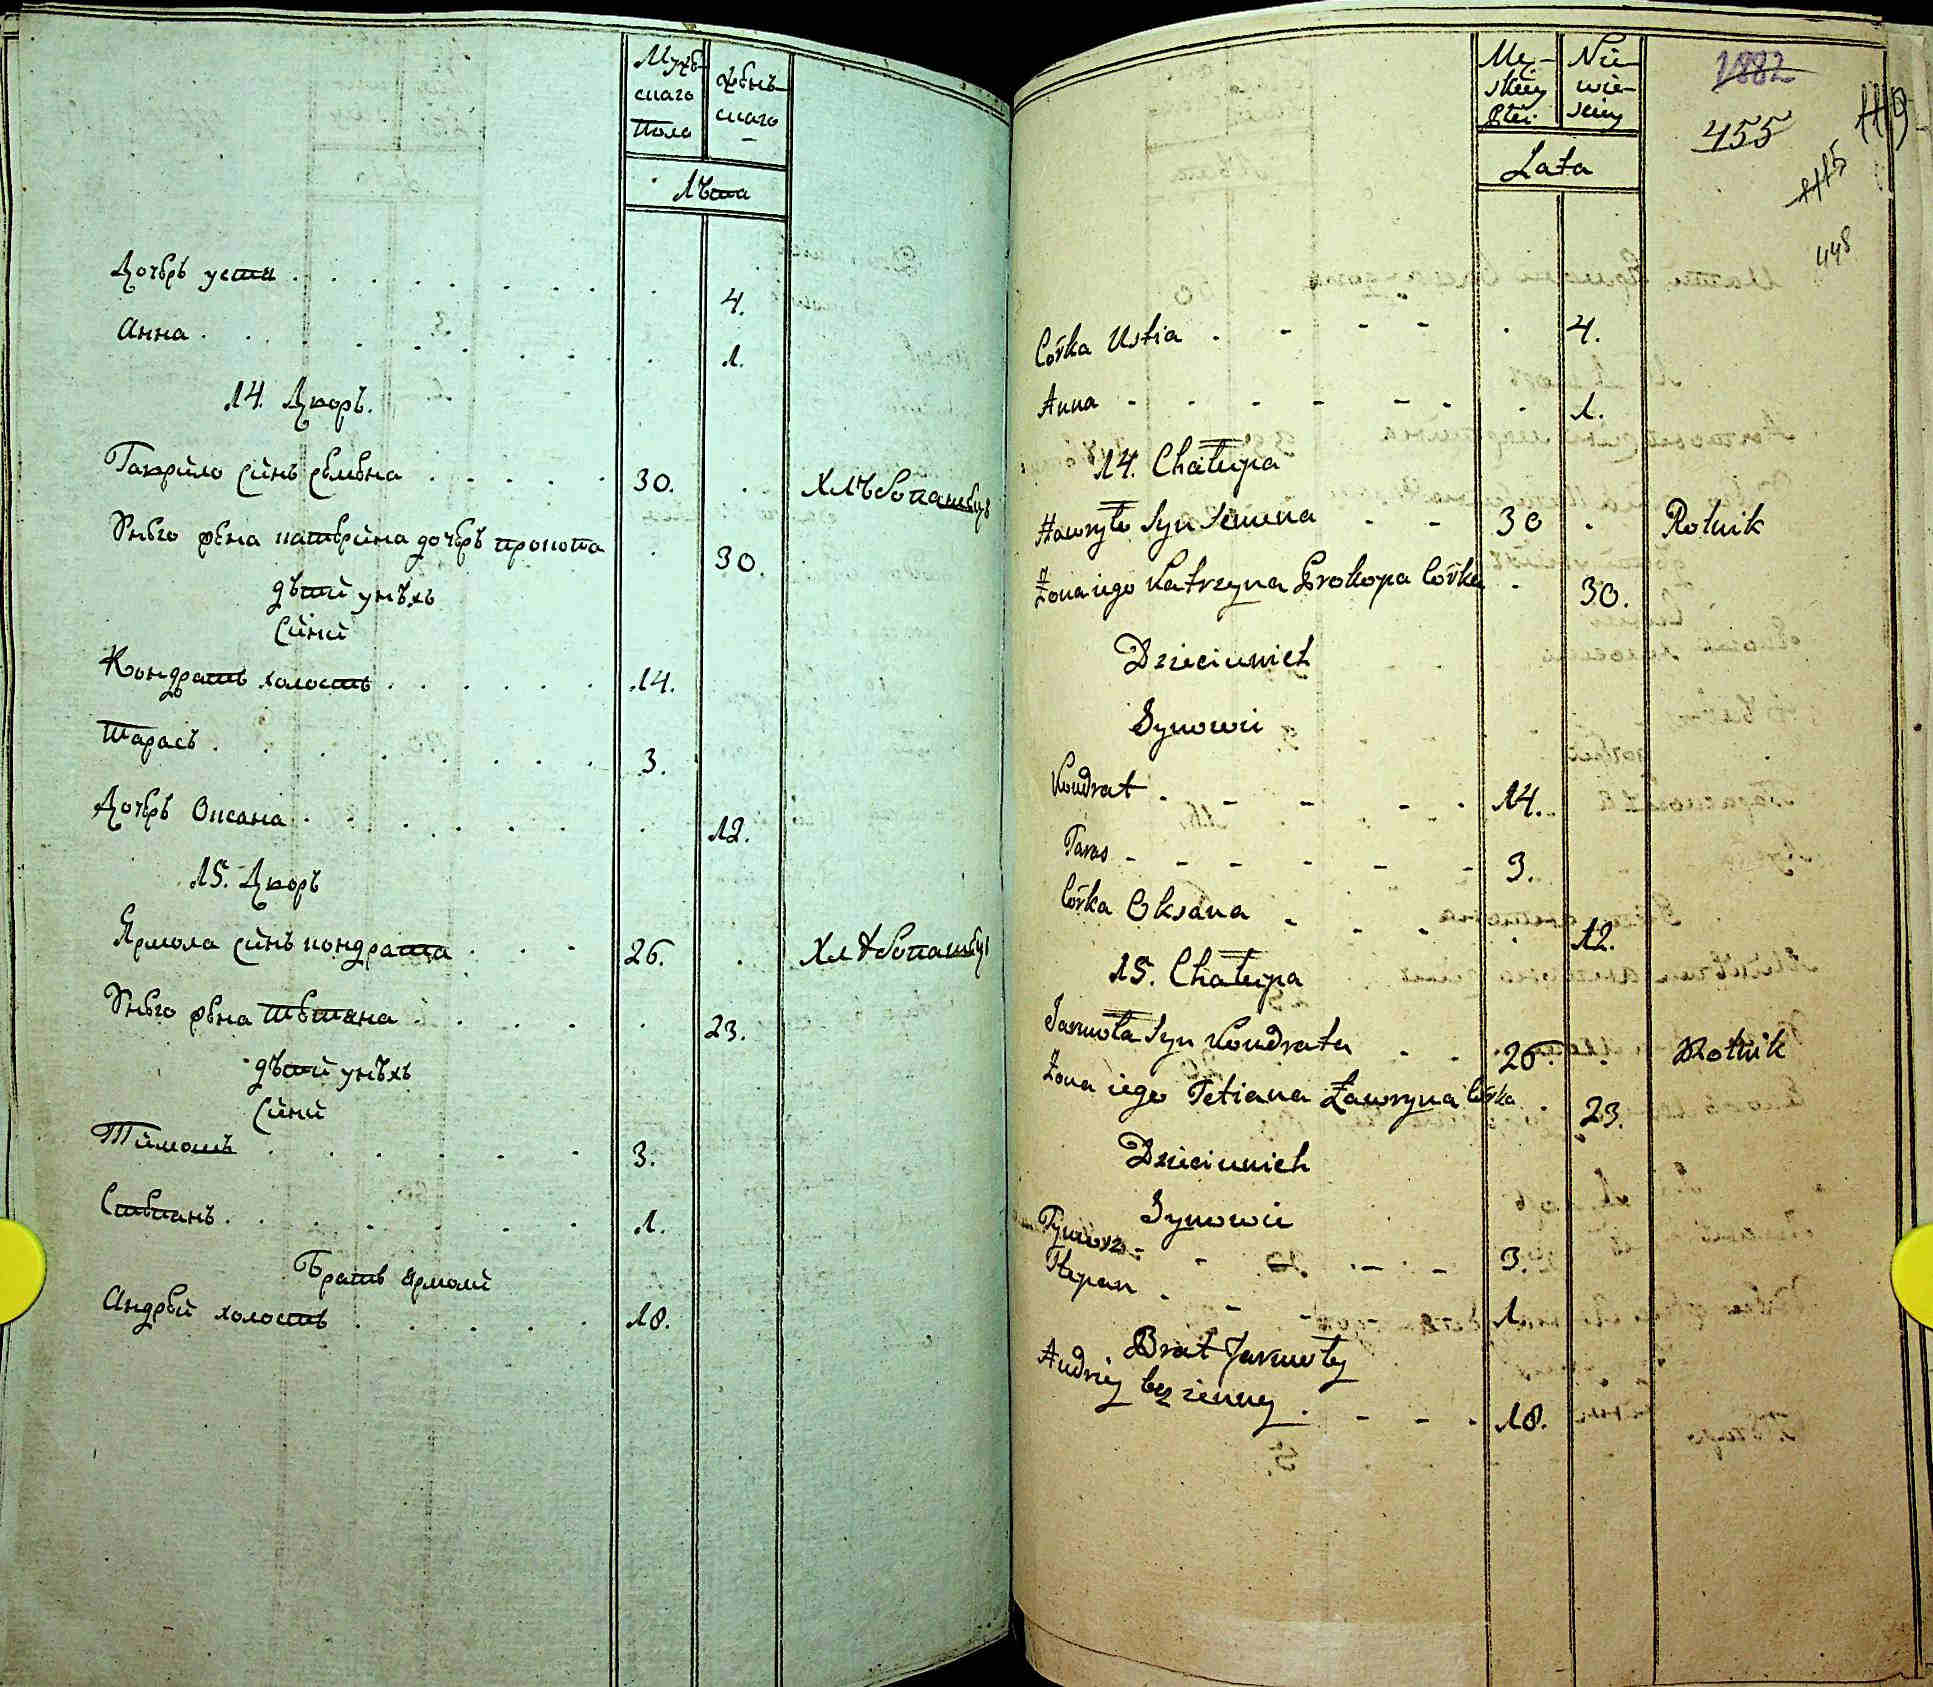 Мужскаго Пола
Женскаго
Лѣта
Дочерь устя 4.
Анна 1.
14. Дворъ.
Гаврило Синъ Семена 30. Хлѣбопашецъ
Унего жена катерина дочерь прокопа 30.
дѣтй унѣхъ
Синй
Кондратъ холостъ 14.
Тарасъ 3.
Дочерь Оксана 12.
15. Дворъ
Ярмола Синъ кондрата 26. Хлѣбопашецъ
Унего жена тетяна 23.
дѣтй унѣхъ
Синй
Тимошъ 3.
Степанъ 1.
Братъ ярмолй
Андрей холостъ 18.
Męskiey Płci
Niewieskiey
Lata
1882
455
119
115
448
Córka Ustia 4.
Anna 1.
14. Chałupa
Hawryło Syn Semena 30 Rolnik
Żona iego Katrzyna Prokopa Córka 30.
Dzieci unich
Synowie
Kondrat 14.
Taras 3.
Córka Oksana 12.
15. Chałupa
Jarmoła Syn Kondrata 26. Rolnik
Żona iego Tetiana Ławryna Córka 23.
Dzieci unich
Synowie
Tymosz 3.
Stepan 1.
Brat Jarmoły
Andriey bezżenny 18.